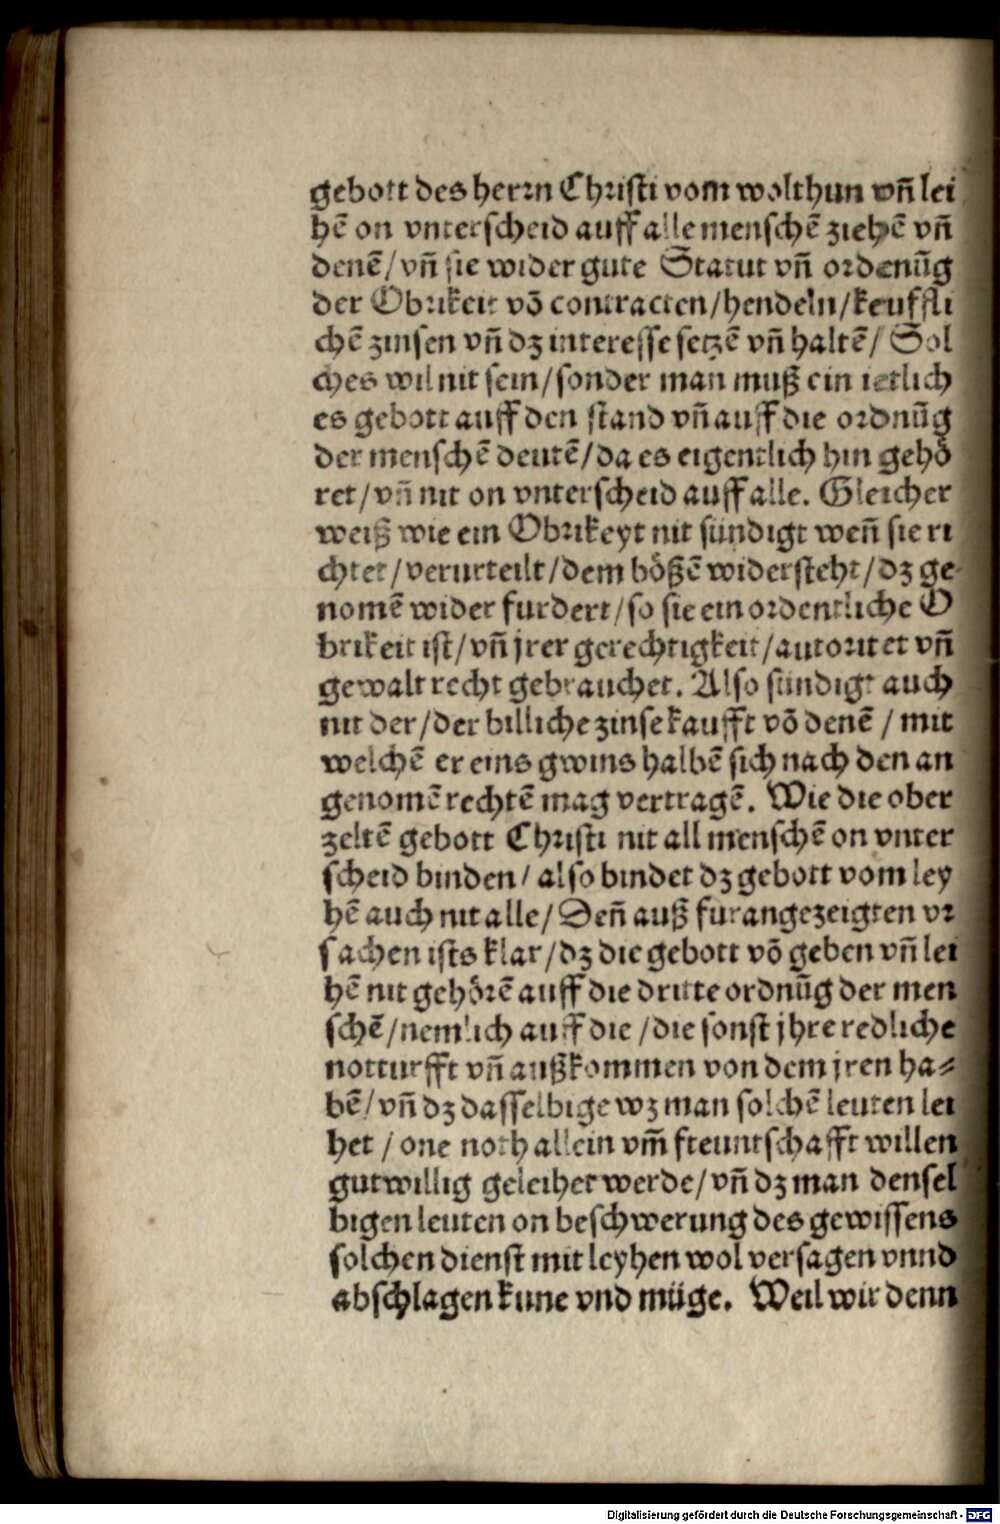 gebott des herrn Christi vom wolthun vñ lei
hẽ on vnterscheid auff alle menschẽ ziehẽ vñ
denẽ/ vñ sie wider gute Statut vñ ordenũg
der Obrikeit võ contracten/hendeln/keuffli
chẽ zinsen vñ dz interesse setzẽ vñ haltẽ/ Sol
ches wil nit sein/sonder man muß ein ietlich
es gebott auff den stand vñ auff die ordnũg
der menschẽ deutẽ/da es eigentlich hin gehö
ret/vñ nit on vnterscheid auff alle. Gleicher
weiß wie ein Obrikeyt nit sündigt weñ sie ri
chtet/verurteilt/dem bößẽ widersteht/dz ge-
nomẽ wider furdert/so sie ein ordentliche O
brikeit ist/vñ jrer gerechtigkeit/autoritet vñ
gewalt recht gebrauchet. Also sündigt auch
nit der/der billiche zinse kaufft võ denẽ / mit
welchẽ er eins gwins halbẽ sich nach den an
genomẽ rechtẽ mag vertragẽ. Wie die ober
zeltẽ gebott Christi nit all menschẽ on vnter
scheid binden/ also bindet dz gebott vom ley
hẽ auch nit alle/ Deñ auß furangezeigten vr
sachen ists klar/dz die gebott võ geben vñ lei
hẽ nit gehörẽ auff die dritte ordnũg der men
schẽ/nemlich auff die/die sonst jhre redliche
notturfft vñ außkommen von dem jren ha⸗
bẽ/vñ dz dasselbige wz man solchẽ leuten lei
het / one noth allein vm̃ freuntschafft willen
gutwillig geleihet werde/vñ dz man densel
bigen leuten on beschwerung des gewissens
solchen dienst mit leyhen wol versagen vnnd
abschlagen kune vnd müge. Weil wir denn
Digitalisierung gefördert durch die Deutsche Forschungsgemeinschaft - DFG